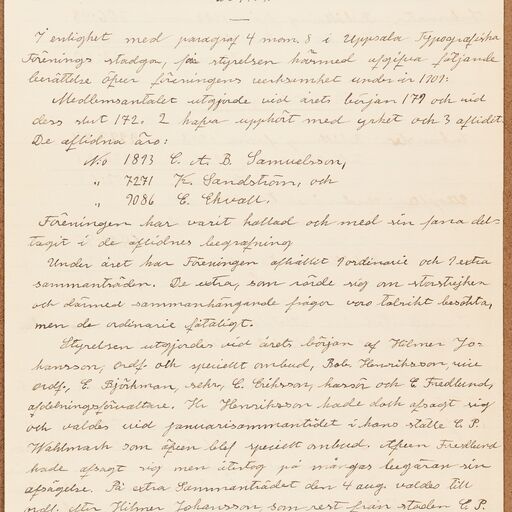 I enlighet med paragraf 4 mom. 8 i Uppsala Typografiska
Förenings stadgar, får styrelsen härmed afgifva följande
berättelse öfver föreningens verksamhet under år 1909:
Medlemsantalet utgjorde vid årets början 179 och vid
dess slut 172. 2 hafva upphört med yrket och 3 aflidit.
De aflidna äro:
No 1893 C. A. B. Samuelsson,
„ 7271 K. Sandström, och
„ 9086 E. Ekvall.
Föreningen har varit kallad och med sin fana del-
tagit i de aflidnes begrafning
Under året har Föreningen afhållit 9 ordinarie och 9 extra
sammanträden. De extra, som rörde sig om storstrejken
och därmed sammanhängande frågor voro talrikt besökta,
men de ordinarie fåtaligt.
Styrelsen utgjordes vid årets början af Hilmer Jo-
hansson, ordf. och speciellt ombud, Rob. Henriksson, vice
ordf., E. Björkman, sekr., C. Eriksson, kassör och E. Fredlund,
afdelningsförvaltare. Hr Henriksson hade dock afsagt sig
och valdes vid januarisammanträdet i hans ställe C. P.
Wahlmark som äfven blef speciellt ombud. Äfven Fredlund
hade afsagt sig men återtog på mångas begäran sin
afsägelse. På extra Sammanträdet den 4 aug. valdes till
ordf. efter Hilmer Johansson som rest från staden C. P.